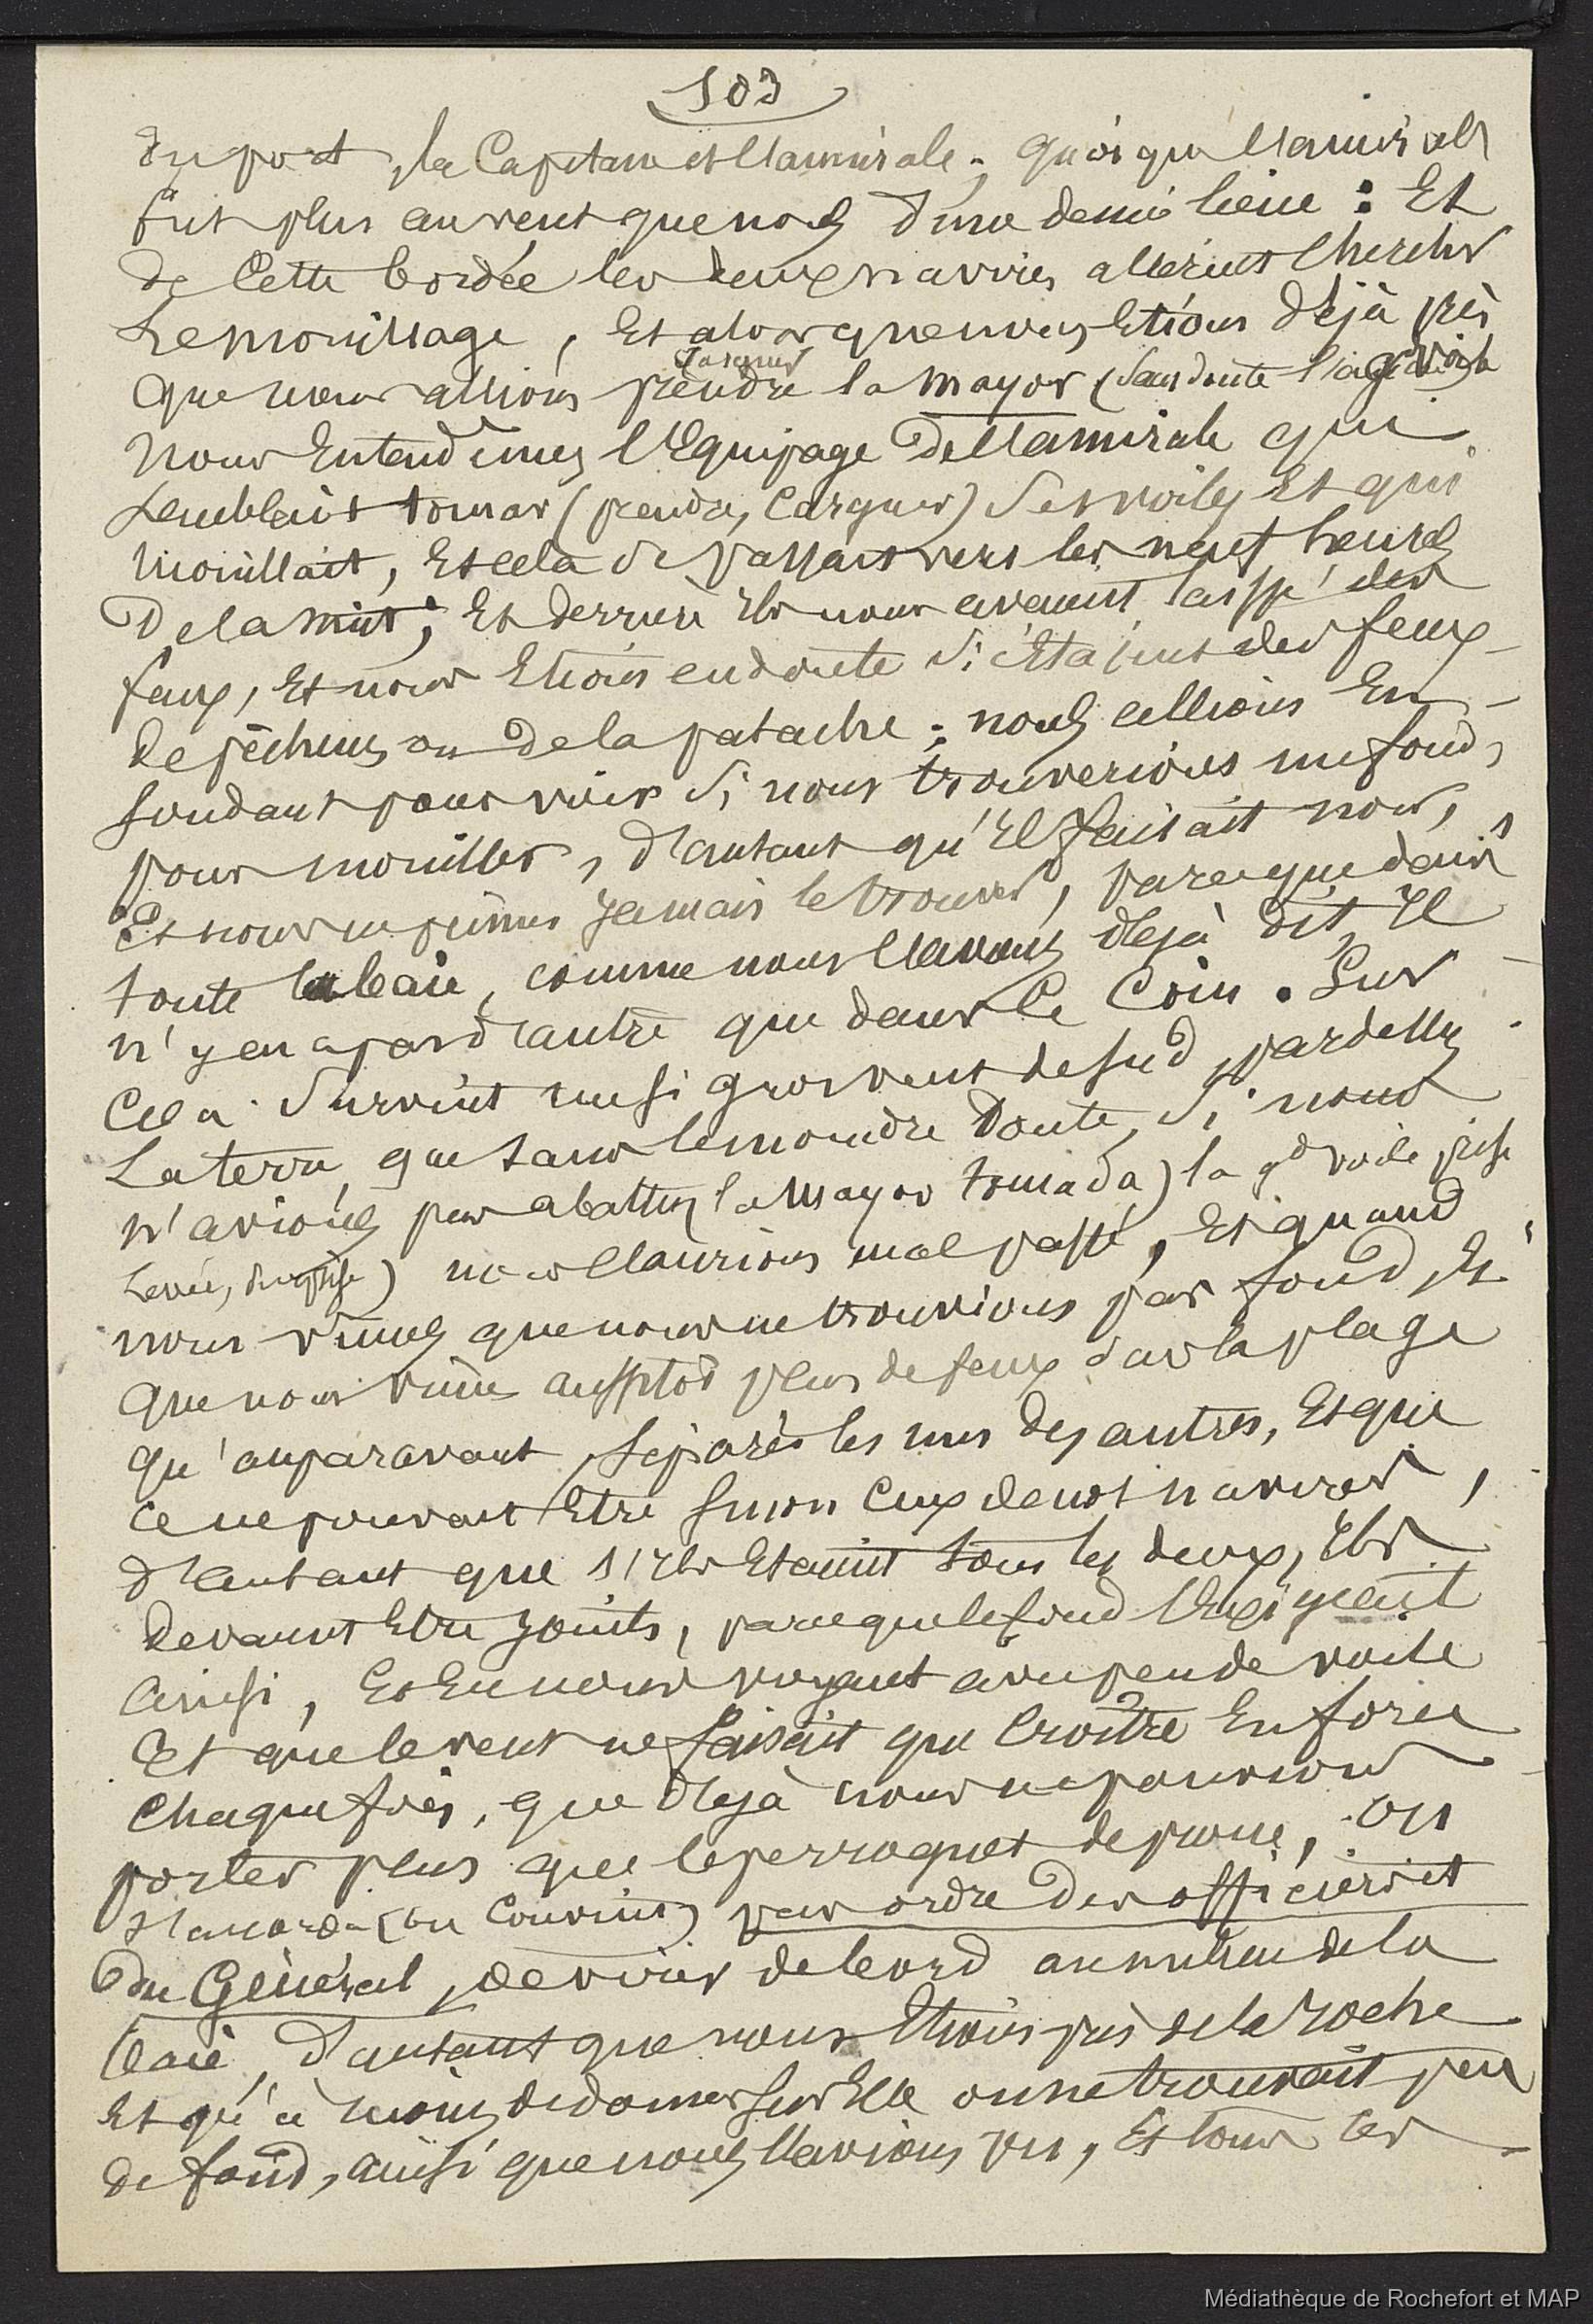 103
Du port, la Capitane et l'amirale; quoique l'amirale
fut plus au vent que nous d'une demie lieue : Et
de cette bordée les deux navires allerent chercher
Le mouillage, Et alors que nous Etions déjà près
carguer
que nous allions prendre la mayor (sans doute la gde voile
nous Entendimes l'Equipage de l'amirale qui
semblait tomar (prendre, carguer) ses voiles Et qui
mouillait, Et cela se passait vers les neuf heures
De la nuit; Et derrière Ils nous avaient laissé des
feux, Et nous Etions en doute si c'étaient des feux
de pêcheurs ou de la patache; nous allions En
sondant pour voir si nous trouverions un fond,
pour mouiller, d'autant qu'Il faisait noir,
Et nous ne pûmes jamais le trouver, parce que dans
toute la baie, comme nous l'avons déjà dit, Il
n'y en a pas d'autre que dans ce coin. Sur
Cela survint un si gros vent de sud, par dessus
La terre, que sans le moindre doute, si nous
n'avions pas abattu (la mayor tomada) la gd voile prise
nous l'aurions mal passé, Et quand
nous vîmes que nous ne trouvions pas fond, Et
que nous vîmes aussitôt plus de feux sur la plage
qu'auparavant, séparés les uns des autres, Et que
ce ne pouvait Etre sinon ceux de nos navires,
d'autant que s'Ils Etaient tous les deux, Ils
devaient Etre joints, parce que le fond l'exigeait
ainsi, Et En nous voyant avec peu de voile
Et que le vent ne faisait que croître En force
chaque fois, que déjà nous ne pouvions
porter plus que le perroquet de proue, On
s'accorda (ou convint) par ordre des officiers et
du Général, de virer de bord au milieu de la
baie, d'autant que nous Etions près de la roche
Et qu'à moins de donner sur Elle on ne trouvait pas
de fond, ainsi que nous l'avions vu, Et tous les
Médiathèque de Rochefort et MAP